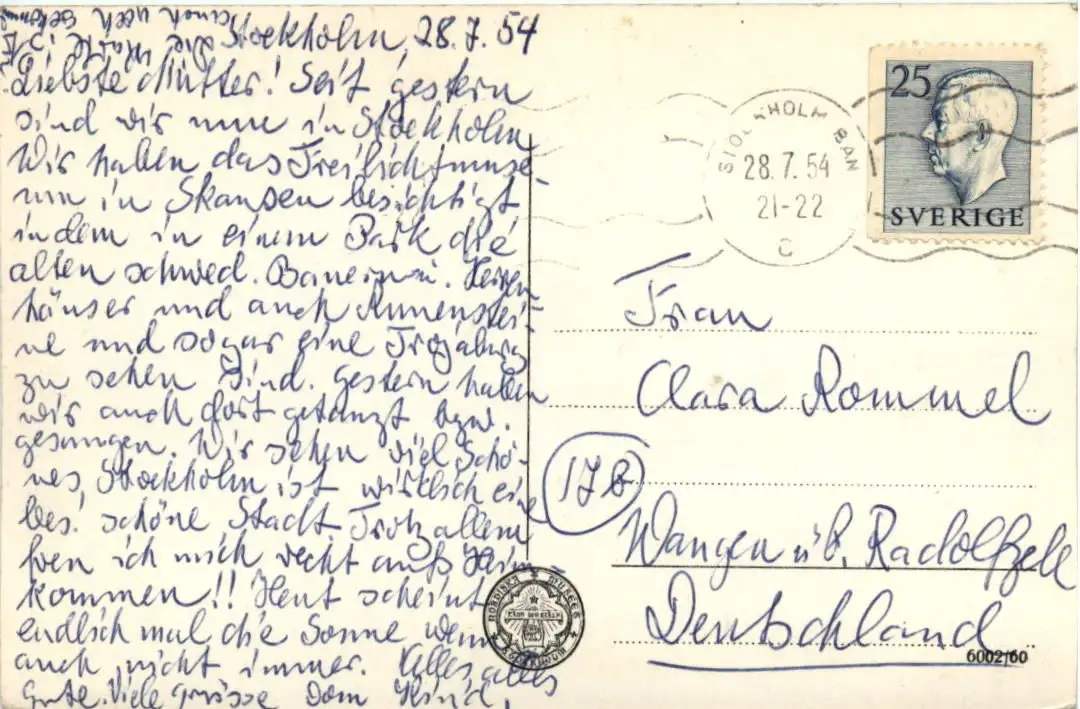 Stockholm, 28.7.54
Liebste Mutter! Seit gestern
sind wir nun in Stockholm.
Wir haben das Freilichtmuse-
um in Skansen besichtigt
indem in einem Park die
alten schwed. Bauern u. Herren
häuser und auch Runenstei-
ne und sogar eine Trojaburg
zu sehen sind. Gestern haben
wir auch dort getanzt bzw.
gesungen. Wir sehen viel Schö-
nes, Stockholm ist wirklich eine
bes. schöne Stadt. Trotz allem
freu ich mich recht aufs Heim
kommen!! Heut scheint
endlich mal die Sonne wenn
auch nicht immer. Alles, alles
Gute. Viele Grüsse Dom Kind.
auch noch
die Karte
25
SVERIGE
STOCKHOLM BAN
28.7.54
21-22
C
Frau
Clara Rommel
17b
Wangen üb. Radolfzell
Deutschland
NORDISKA MUSEET
STOCKHOLM
6002/60